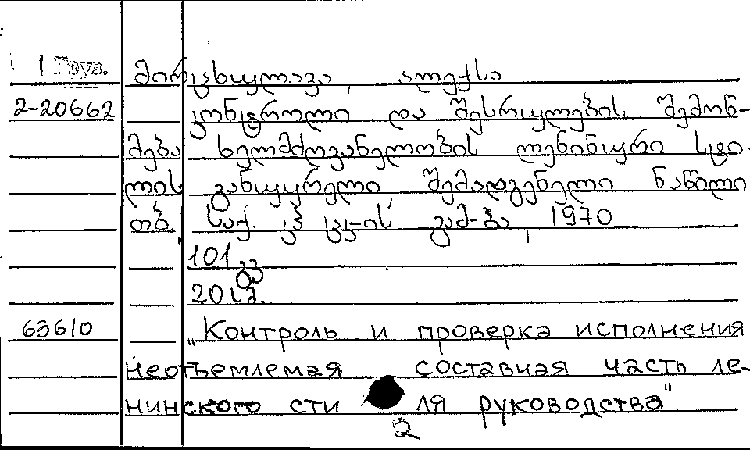 1 Груз. მირცხულავა, ალექსი
2-20662 კონტროლი და შესრულების შემოწ-
მება ხელმძღვანელობის ლენინური სტი-
ლის განუყრელი შემადგენელი ნაწილი
თბ. საქ. კპ ცკ-ის გამ-ბა, 1970
101 გვ
20 კ.
63610 „Контроль и проверка исполнения
неотъемлемая составная часть ле-
нинского сти ля руководства"
2